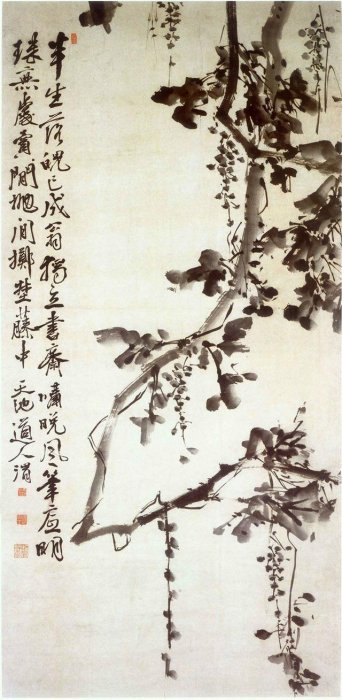 半生落魄已成翁獨立書齋嘯晚風筆底明
珠無處賣閒拋閒擲埜藤中 天池道人渭